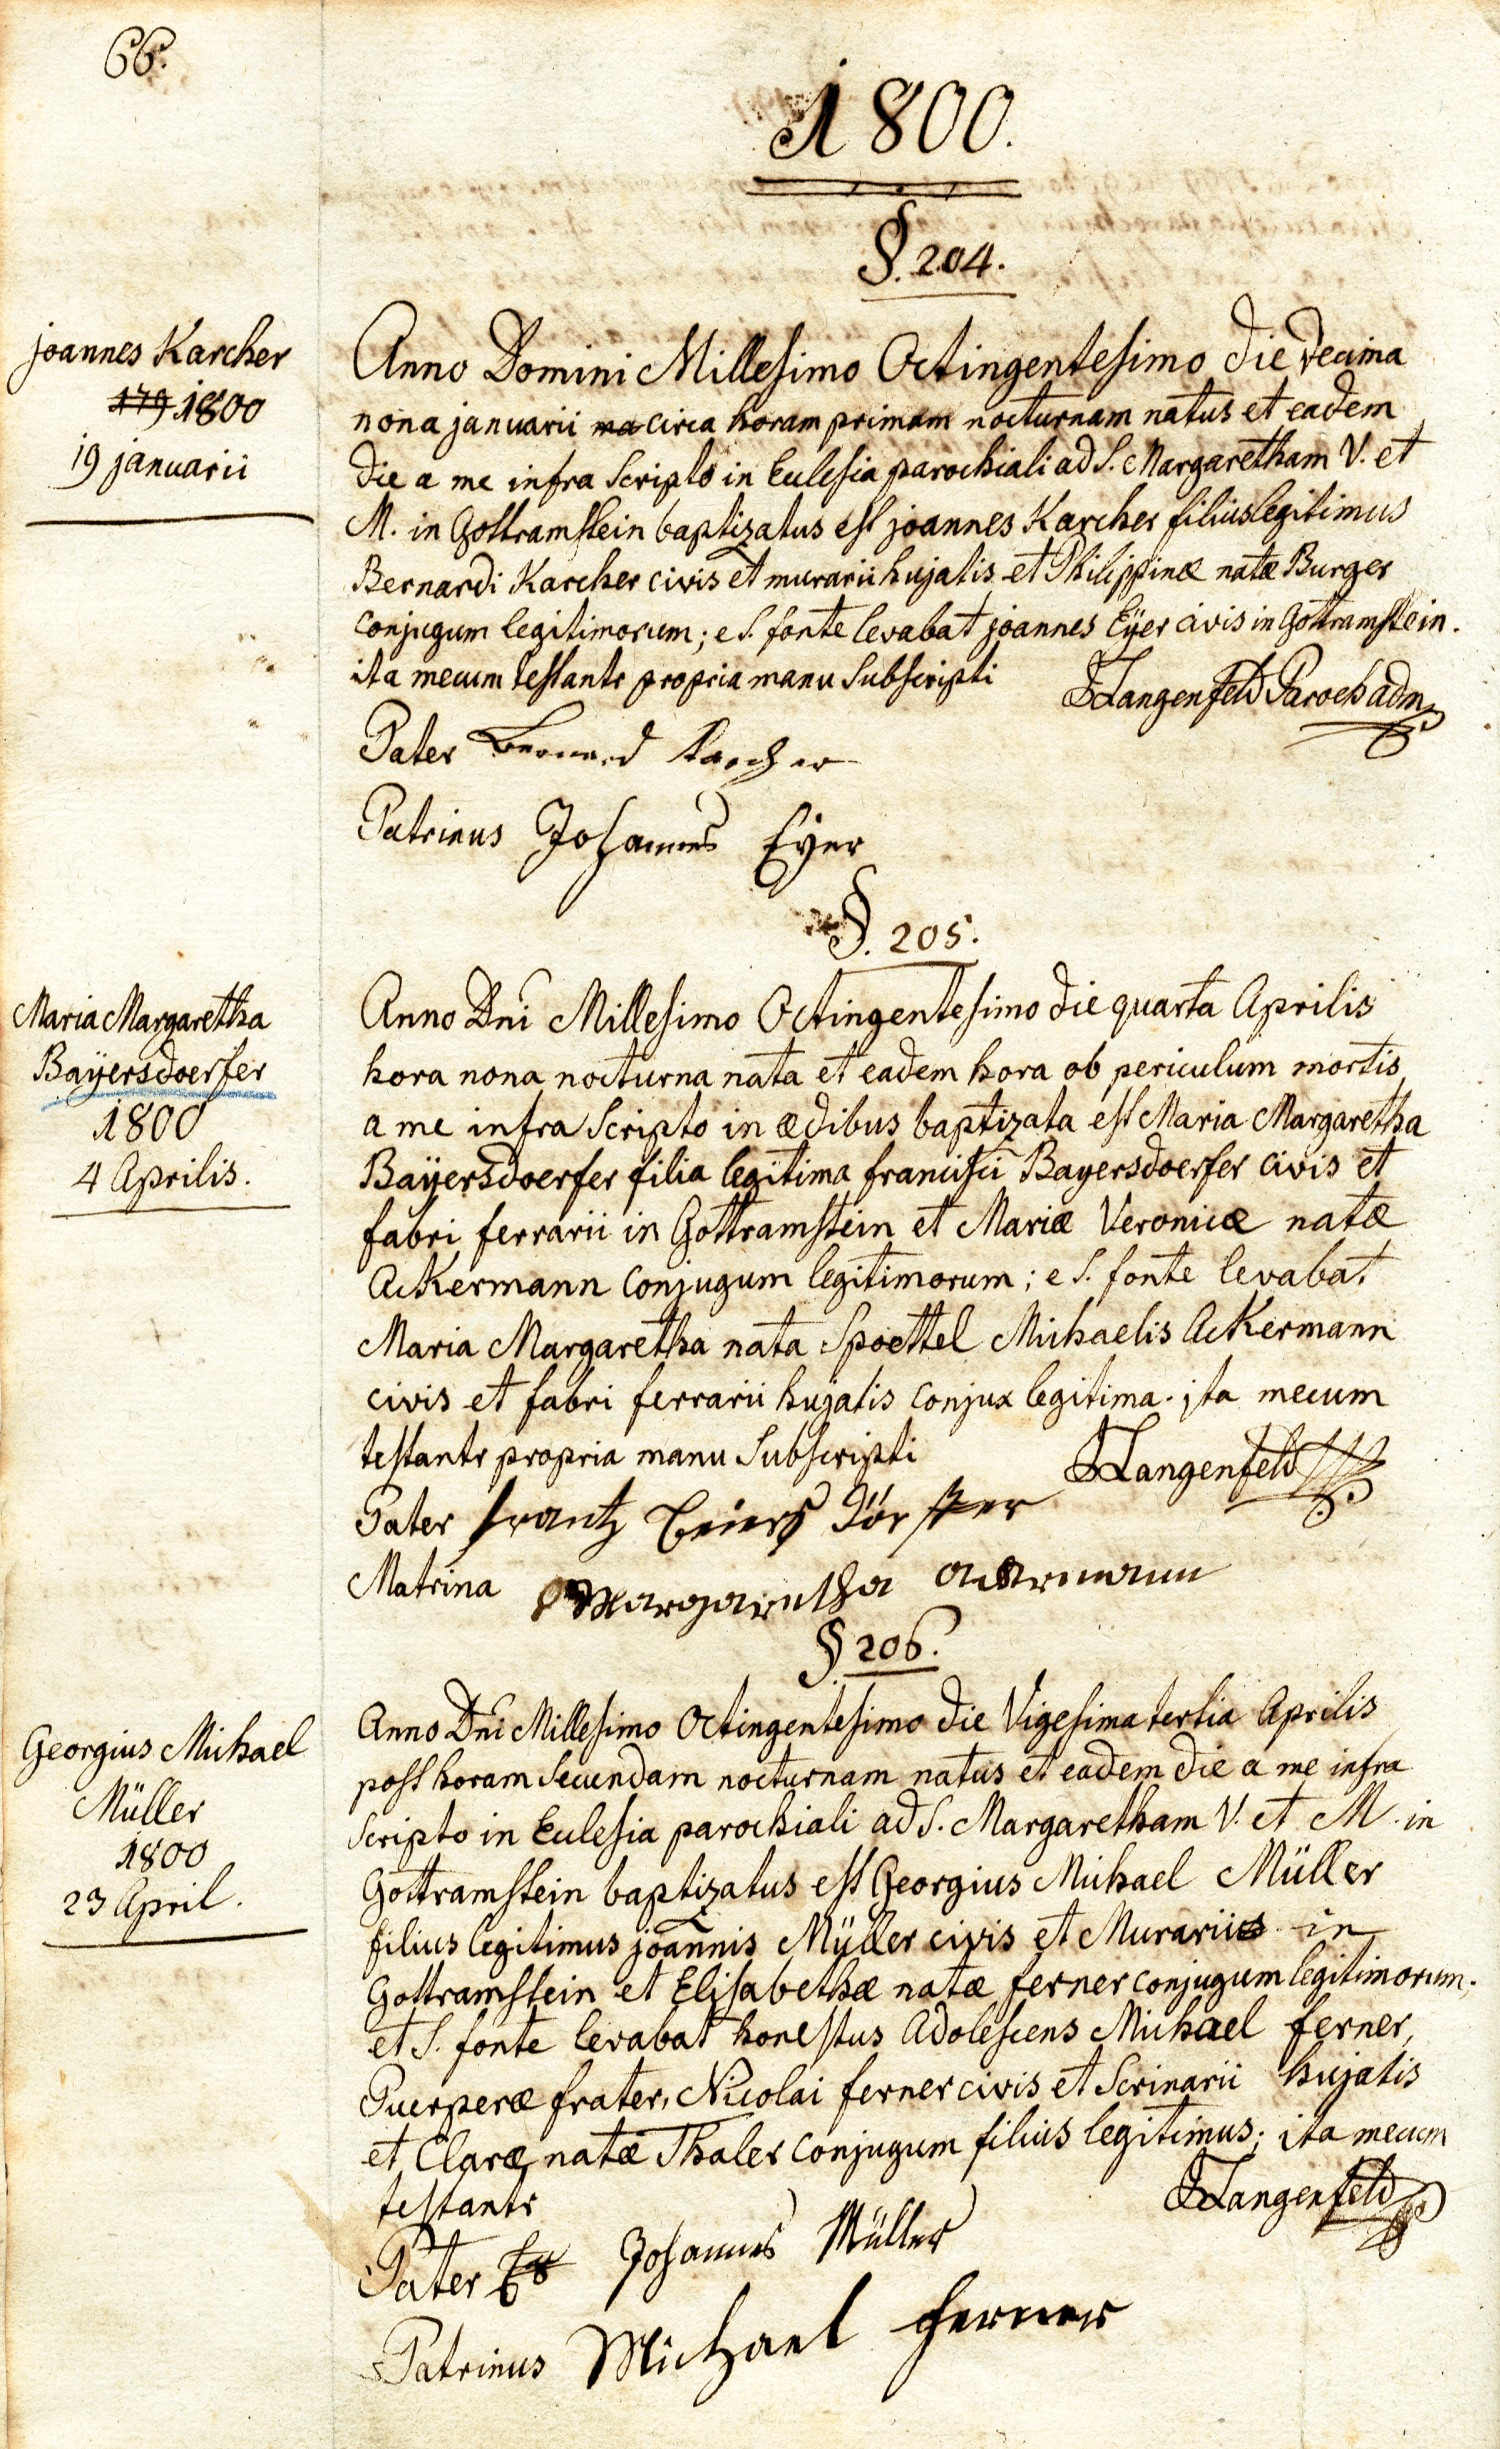 66.
1800.
§. 204.
joannes Karcher
179 1800
19 januarii
Anno Domini Millesimo Octingentesimo die decima
nona januarii ma circa horam primam nocturnam natus et eadem
die a me infra scripto in Eclesia parochiali ad S. Margaretham V. et
M. in Gottramstein baptizatus est joannes Karcher filius legitimus
Bernardi Karcher civis et murarii hujatis et Philippinæ natæ Burger
conjugum legitimorum; e S. fonte levabat joannes Eÿer civis in Gottramstein.
ita mecum testantr propria manu subscripti
Langenfeld Paroch adm
Pater Bernard Karcher
Patrinus Johannes Eyer
§. 205.
Maria Margaretha
Baÿersdoerfer
1800
4 Aprilis.
Anno Dni Millesimo Octingentesimo die quarta Aprilis
hora nona nocturna nata et eadem hora ob periculum mortis
a me infra scripto in ædibus baptizata est Maria Margaretha
Baÿersdoerfer filia legitima francisci Bayersdoerfer civis et
fabri ferrarii in Gottramstein et Mariæ Veronicæ natæ
Ackermann conjugum legitimorum; e S. fonte levabat
Maria Margaretha nata Spoettel Michaelis Ackermann
civis et fabri ferrarii hujatis conjux legitima. ita mecum
testantr propria manu subscripti
Langenfeld
Pater frantz Beiersdörffer
Matrina Margaretha ackermann
§ 206.
Georgius Michael
Müller
1800
23 April.
Anno Dni Millesimo Octingentesimo die Vigesima tertia Aprilis
post horam secundam nocturnam natus et eadem die a me infra
scripto in Eclesia parochiali ad S. Margaretham V. et M. in
Gottramstein baptizatus est Georgius Michael Müller
filius legitimus joannis Müller civis et Murarii in
Gottramstein et Elisabethæ natæ ferner conjugum legitimorum;
et S. fonte levabat honestus Adolescens Michael ferner,
Puerperæ frater, Nicolai ferner civis et Scrinarii hujatis
et Claræ natæ Thaler conjugum filius legitimus; ita mecum
testantr
Langenfeld
Pater Johannes Müller
Patrinus Michael ferner